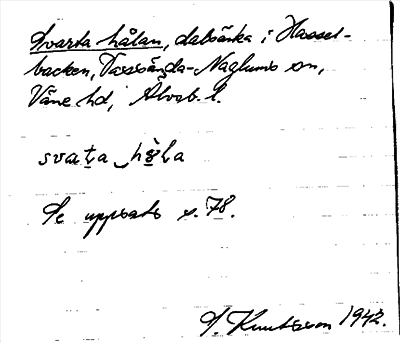 Svarta hålan, dalsänka i Hassel-
backen, Vassända-Naglums sn,
Väne hd, Älvsb. l.
svaṭa hø̀la
Se uppsats s. 78.
S. Knutsson 1942.